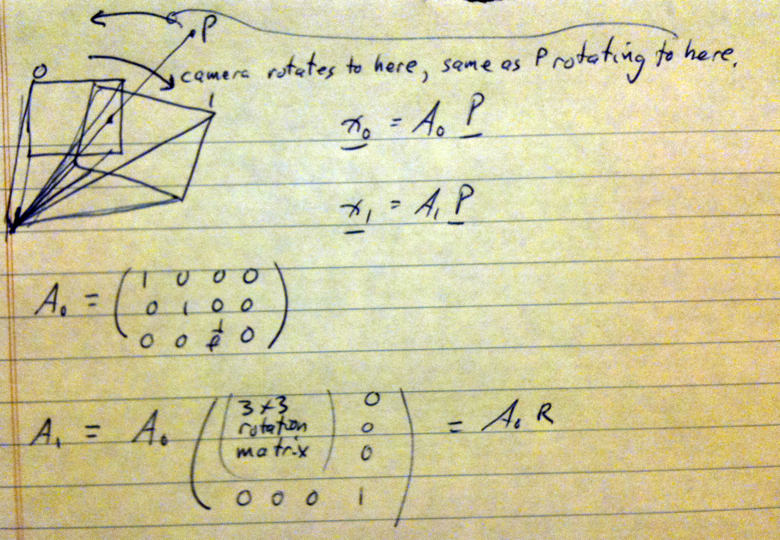 P
camera rotates to here, same as P rotating to here.
0
1
x₀ = A₀ P
x₁ = A₁ P
A₀ = ( 1 0 0 0
0 1 0 0
0 0 1/f 0 )
A₁ = A₀ ( ( 3x3 rotation matrix ) 0
0
0
0 0 0 1 ) = A₀ R